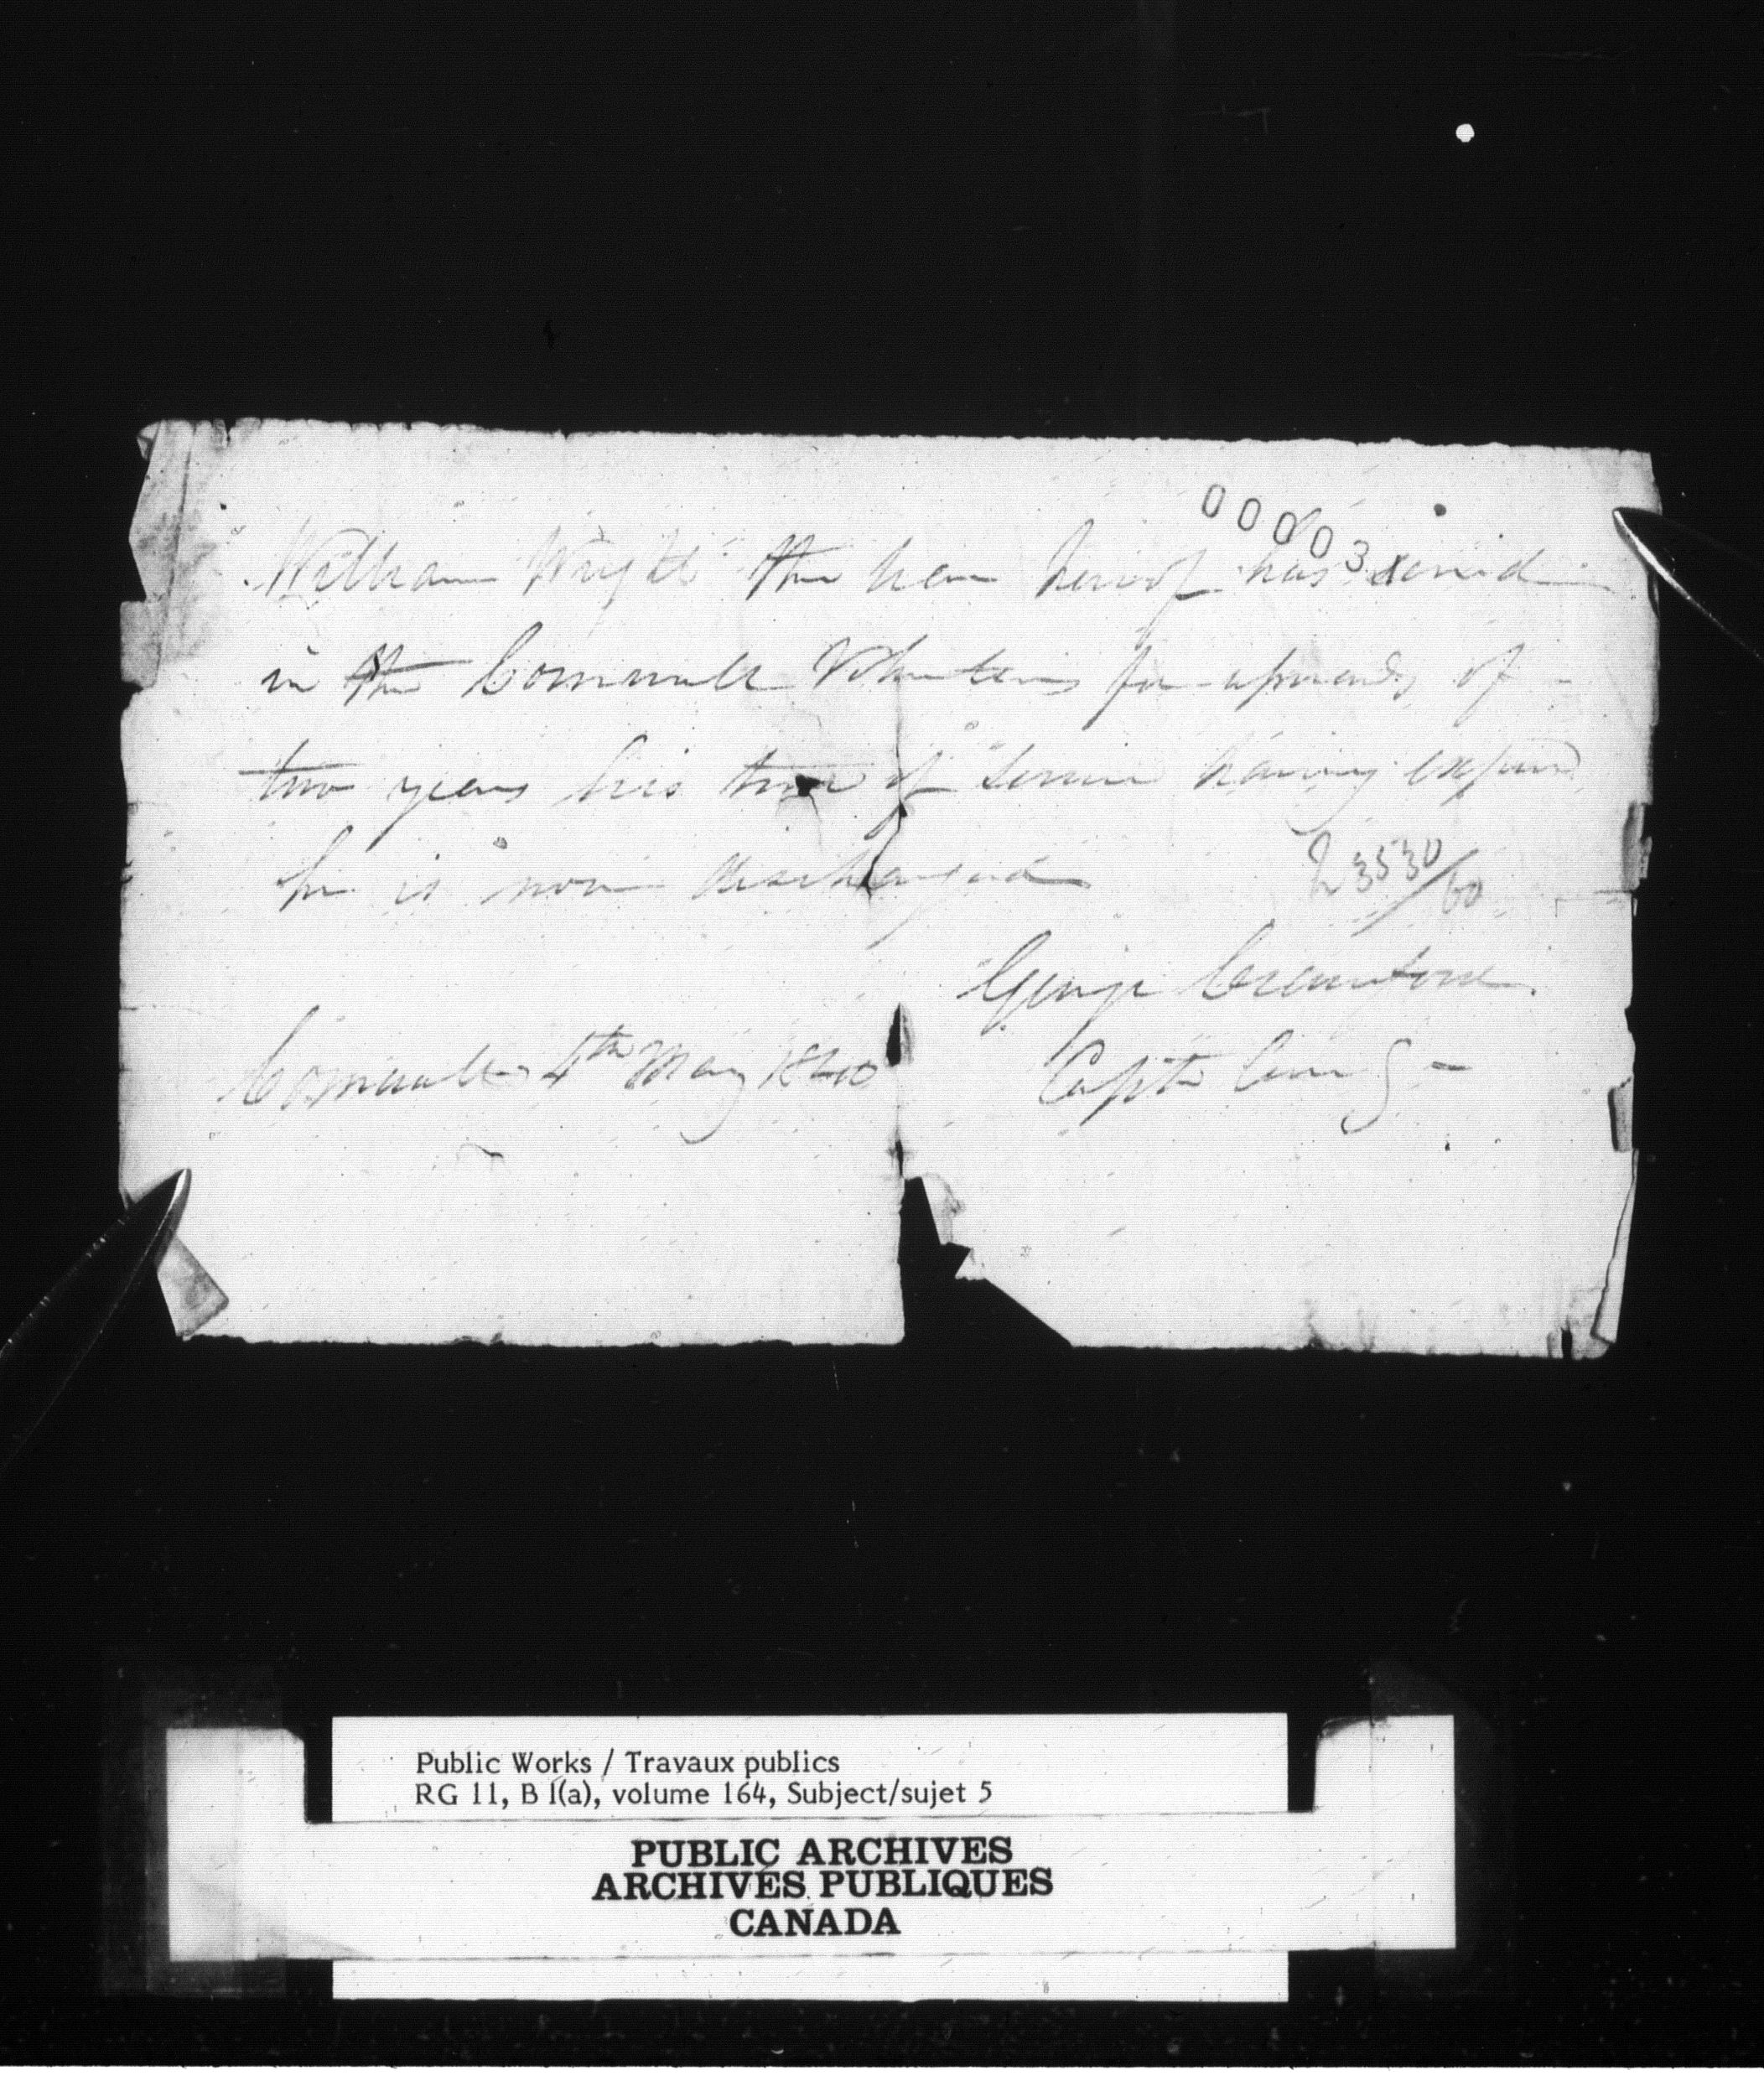 00003
William Wright the bearer hereof has served
in the Cornwall Volunteers for upwards of
two years his time of service having expired
he is now discharged
23530/60
George Crawford
Cornwall 4th May 1840
Capt
Public Works / Travaux publics
RG 11, B 1(a), volume 164, Subject/sujet 5
PUBLIC ARCHIVES
ARCHIVES PUBLIQUES
CANADA